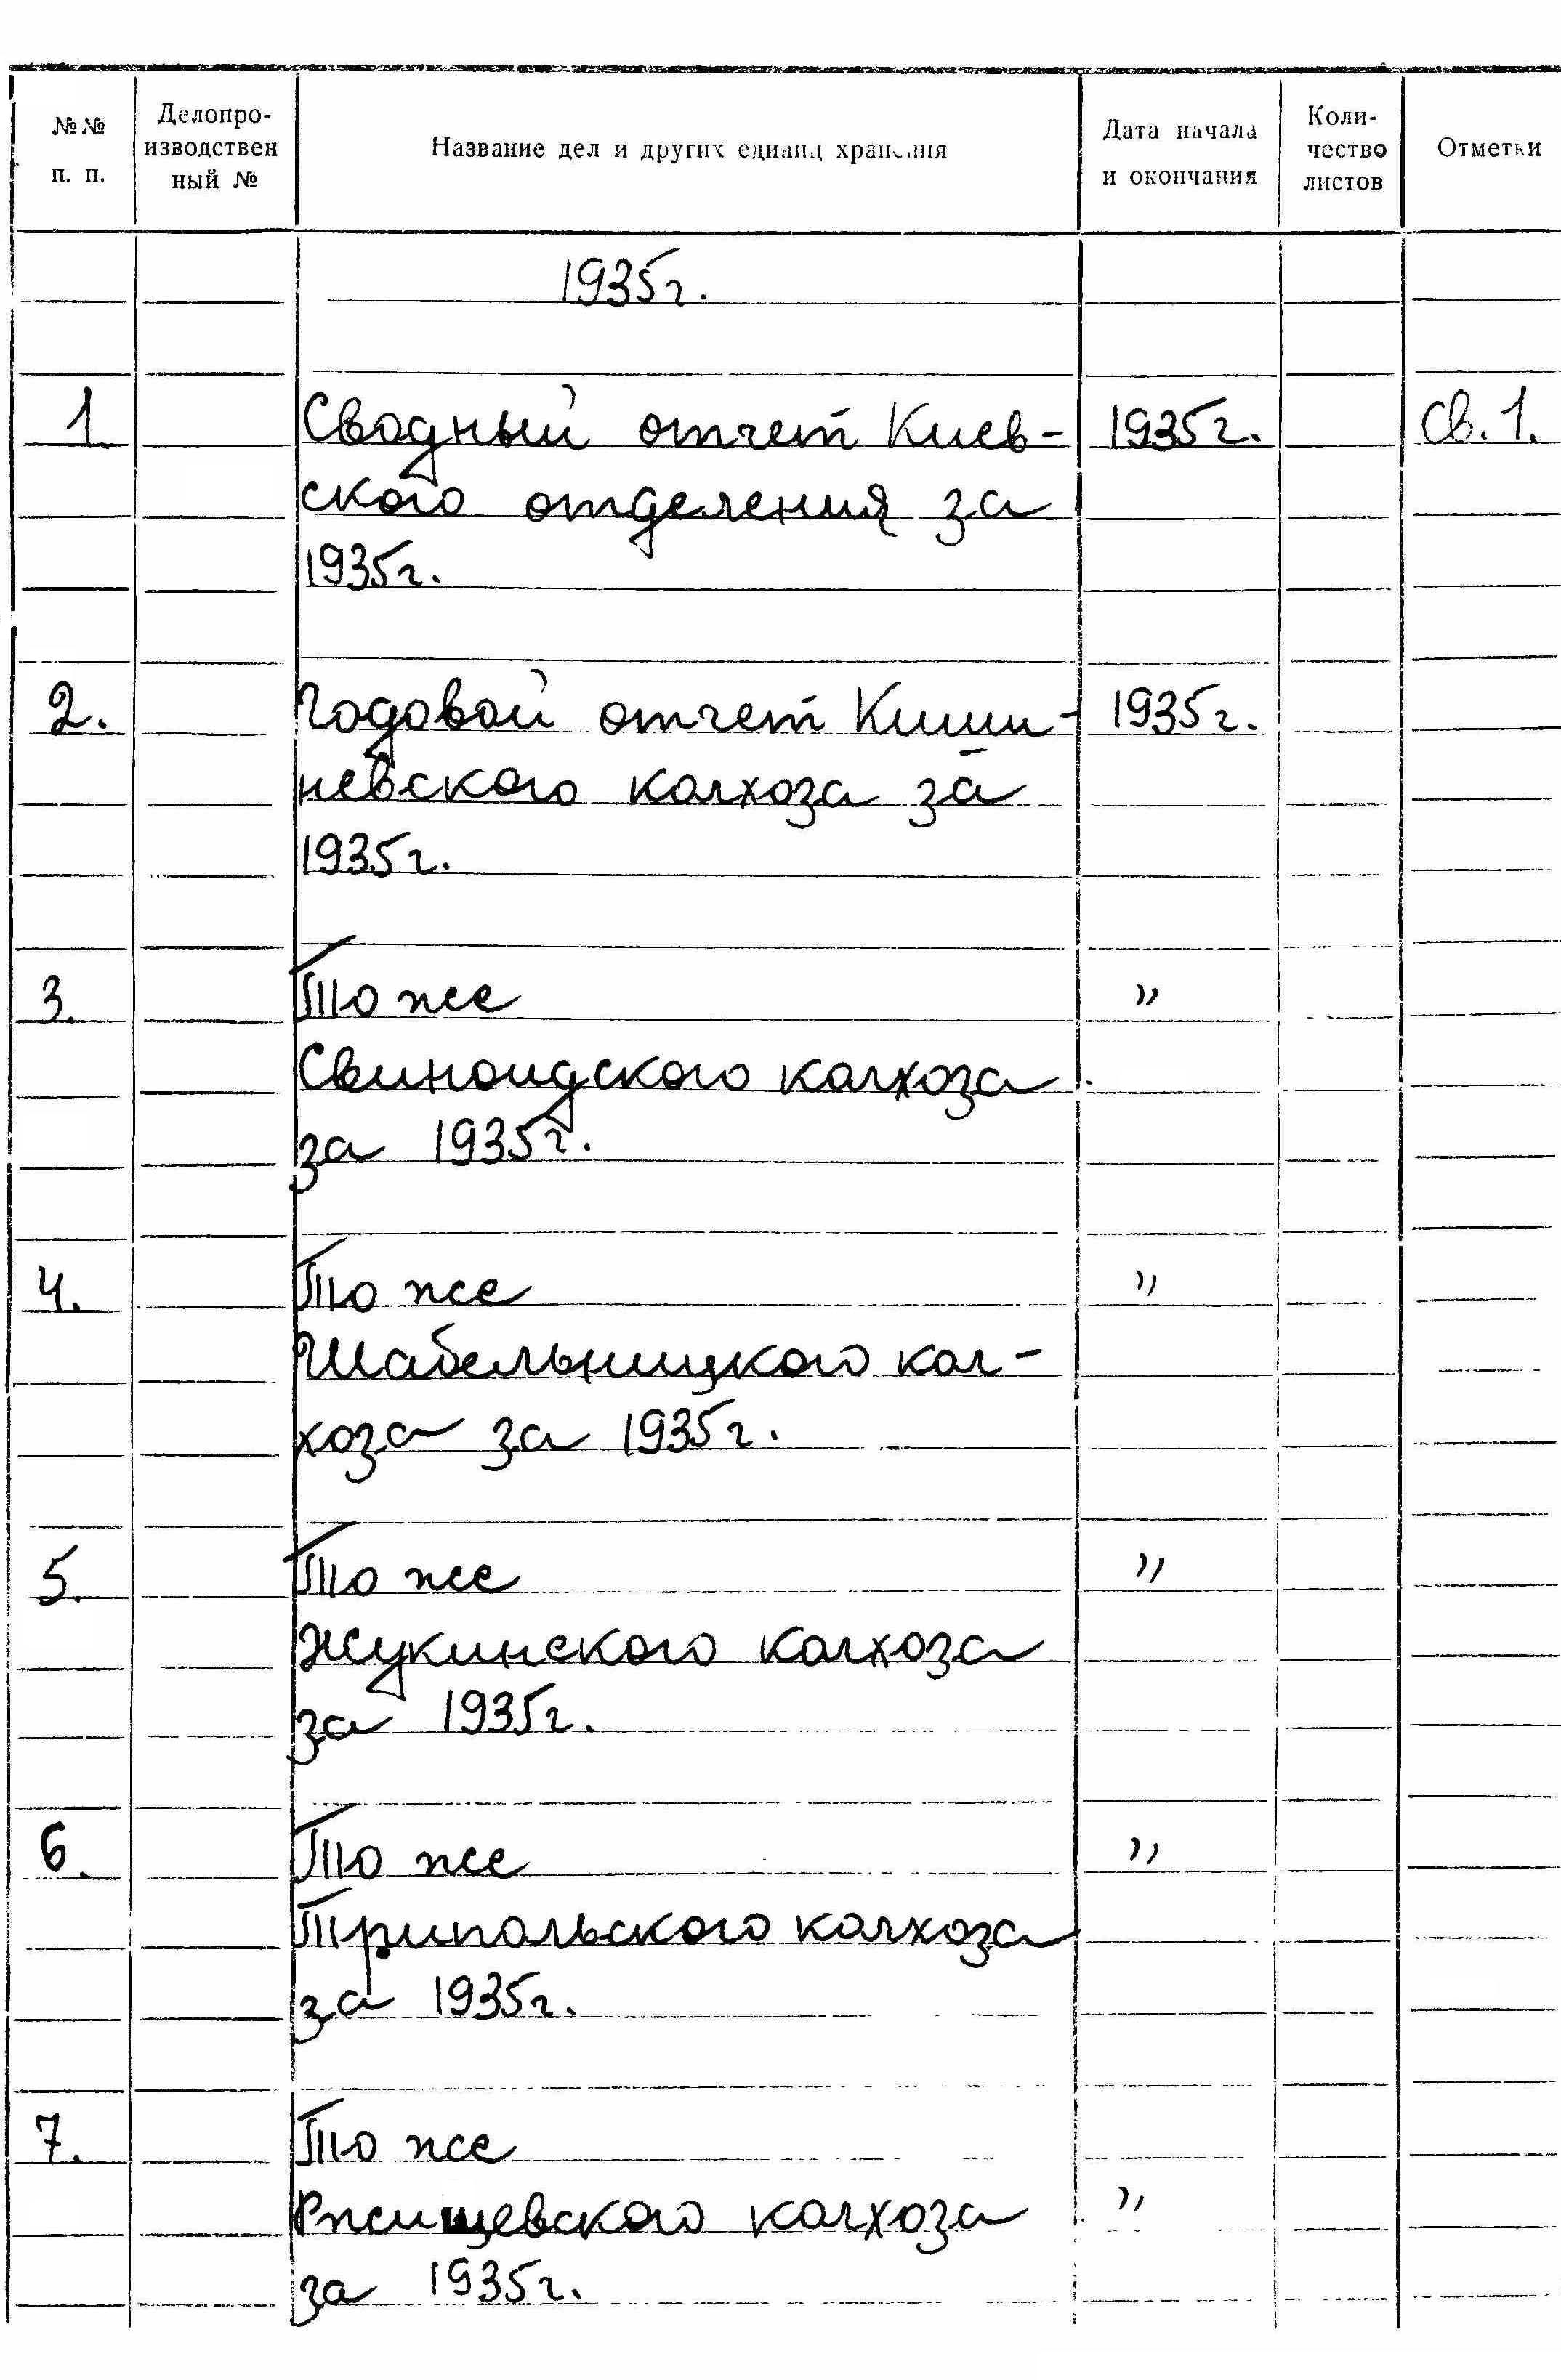 №№ п. п. Делопро-изводствен ный № Название дел и других единиц хранения Дата начала и окончания Коли-чество листов Отметки
1935г.
1. Сводный отчет Киев- 1935г. Св. 1.
ского отделения за
1935г.
2. Годовой отчет Киши- 1935г.
невского колхоза за
1935г.
3. То же "
Свиноидского колхоза
за 1935г.
4. То же "
Шабельницкого кол-
хоза за 1935г.
5. То же "
Жукинского колхоза
за 1935г.
6. То же "
Трипольского колхоза
за 1935г.
7. То же
Ржищевского колхоза "
за 1935г.